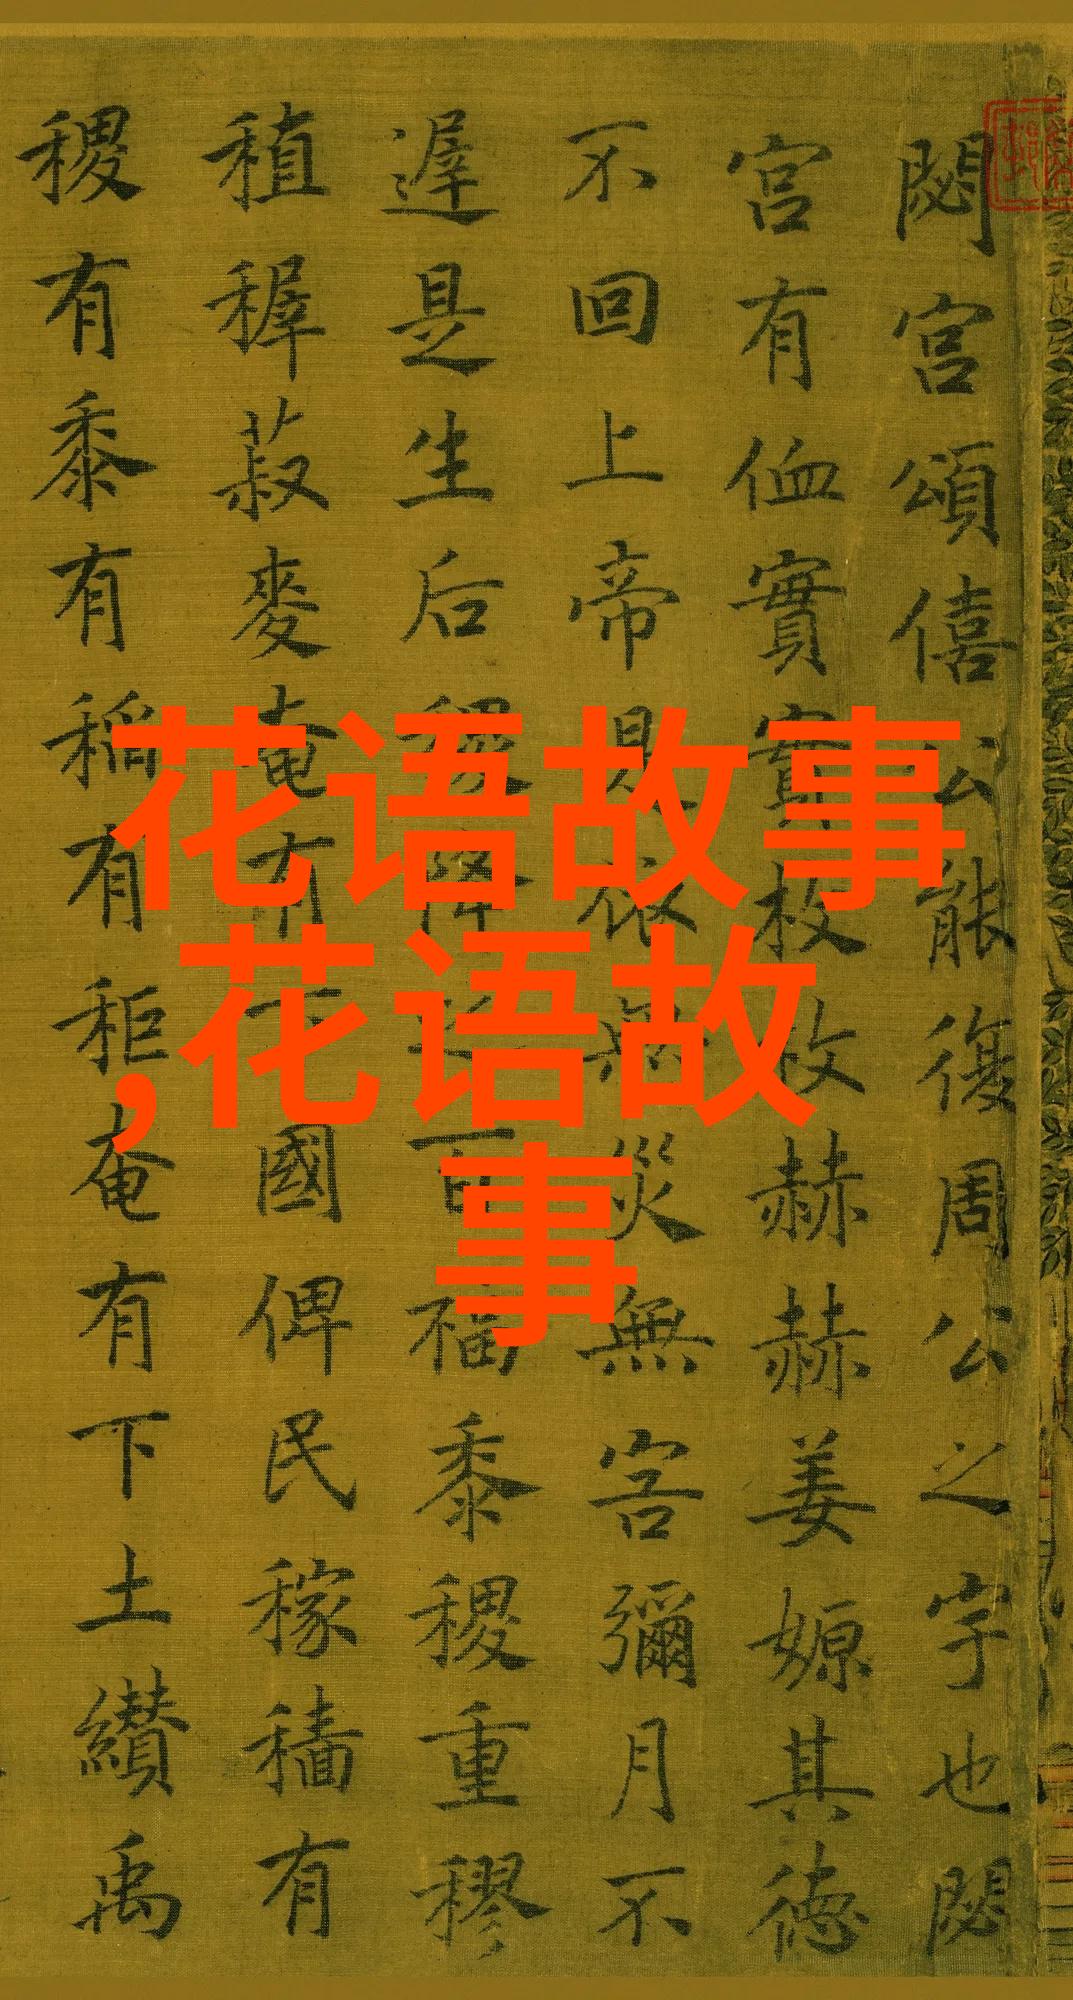 閟宮頌僖公能復周公之宇也閟
宮有侐實實枚枚赫赫姜嫄其德
不回上帝是依無災無害彌月不
遲是生后稷降之百福黍稷重穋
稙穉菽麥奄有下國俾民稼穡有
稷有黍有稻有秬奄有下土纘禹
花语故事
,花语故
事